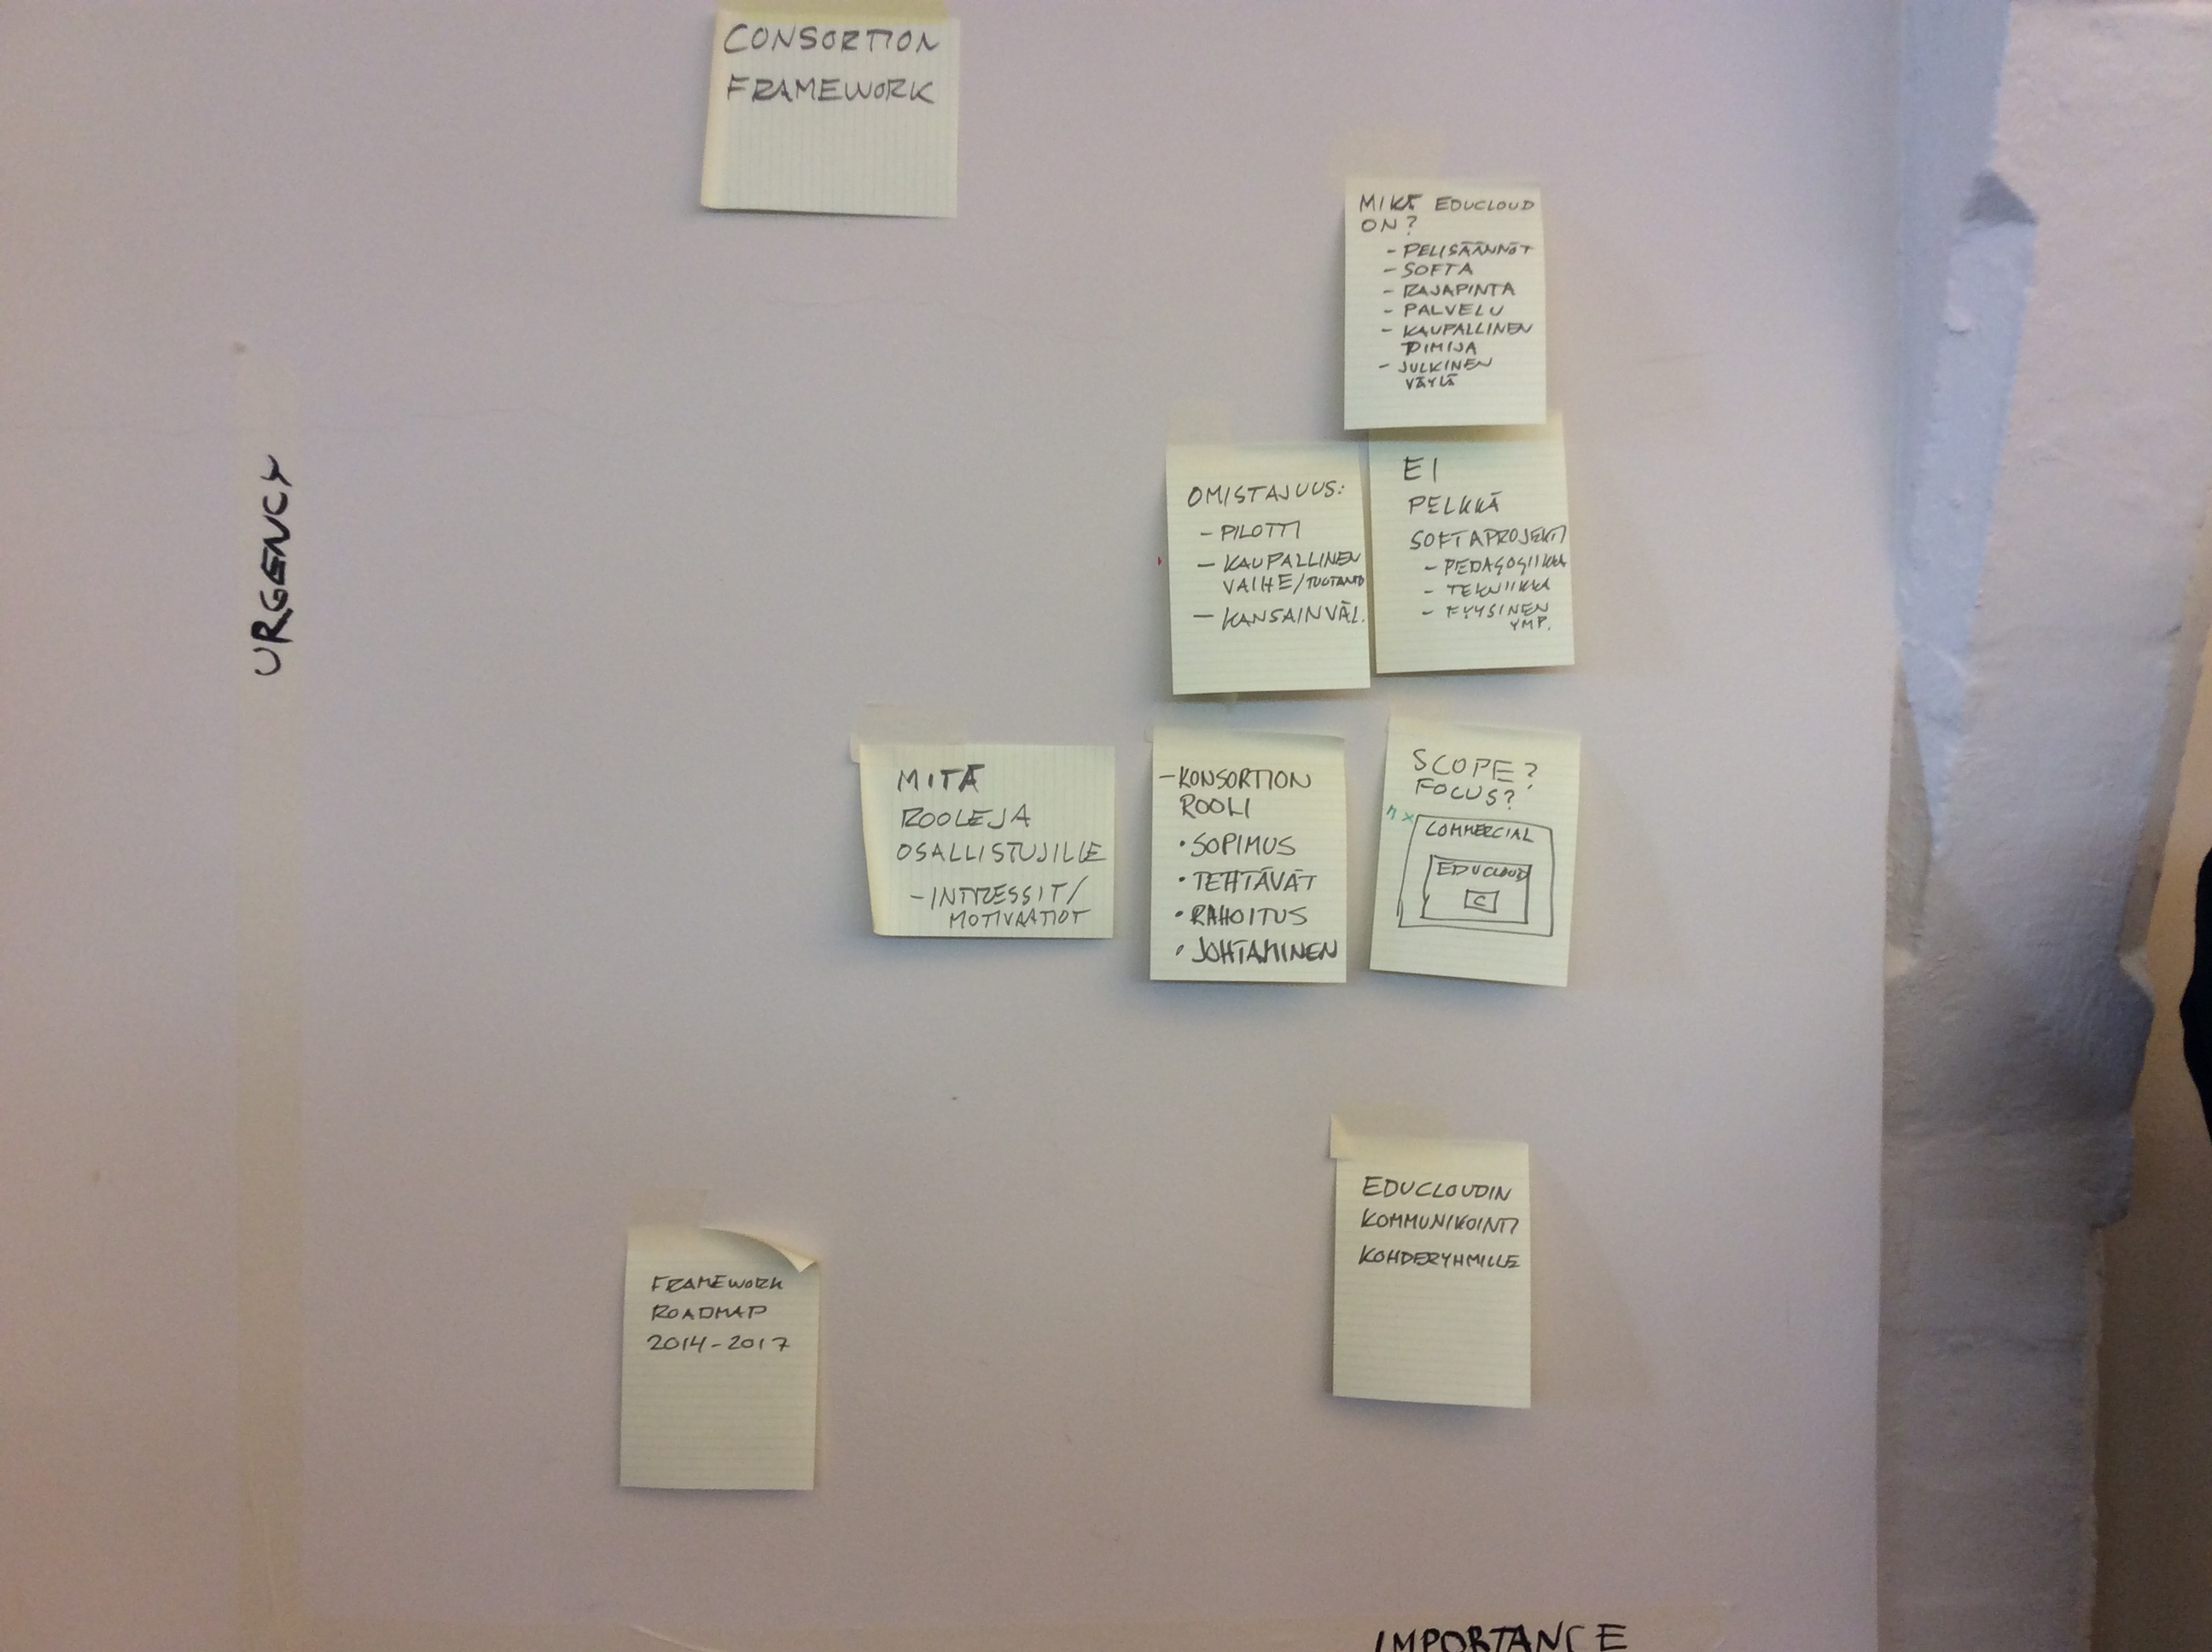 CONSORTION
FRAMEWORK
MIKÄ EDUCLOUD
ON?
- PELISÄÄNNÖT
- SOFTA
- RAJAPINTA
- PALVELU
- KAUPALLINEN
TOIMIJA
- JULKINEN
VÄYLÄ
URGENCY
OMISTAJUUS:
- PILOTTI
- KAUPALLINEN
VAIHE/TUOTANTO
- KANSAINVÄL.
EI
PELKKÄ
SOFTAPROJEKTI
- PEDAGOGIIKKA
- TEKNIIKKA
- FYYSINEN
YMP.
MITÄ
ROOLEJA
OSALLISTUJILLE
- INTRESSIT/
MOTIVAATIOT
- KONSORTION
ROOLI
• SOPIMUS
• TEHTÄVÄT
• RAHOITUS
• JOHTAMINEN
SCOPE?
FOCUS?
n x
COMMERCIAL
EDUCLOUD
C
EDUCLOUDIN
KOMMUNIKOINTI
KOHDERYHMILLE
FRAMEWORK
ROADMAP
2014-2017
IMPORTANCE